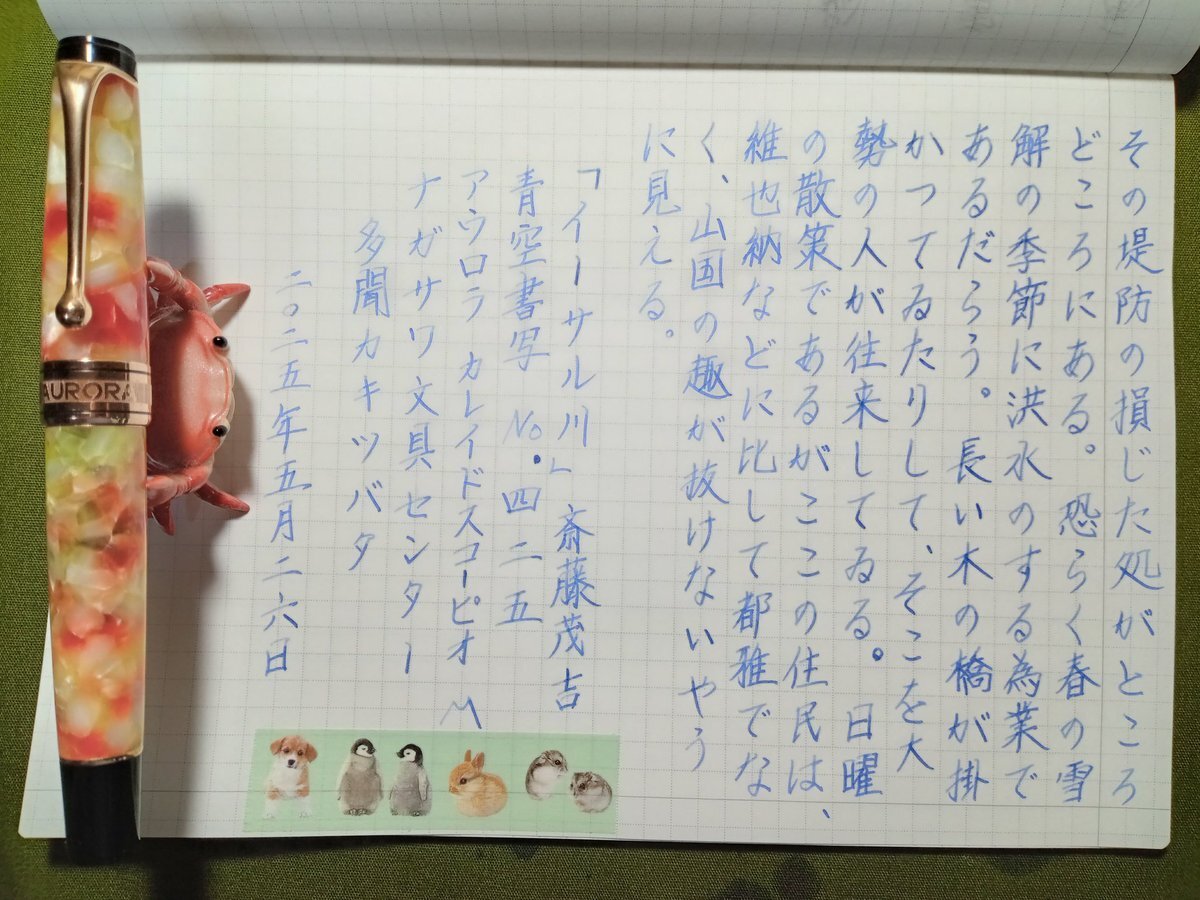 その堤防の損じた処がところ
どころにある。恐らく春の雪
解の季節に洪水のする為業で
あるだらう。長い木の橋が掛
かつてゐたりして、そこを大
勢の人が往来してゐる。日曜
の散策であるがここの住民は、
維也納などに比して都雅でな
く、山国の趣が抜けないやう
に見える。
「イーサル川」斎藤茂吉
青空書写 No.四二五
アウロラ カレイドスコーピオ M
ナガサワ文具センター
多聞カキツバタ
二〇二五年五月二六日
AURORA